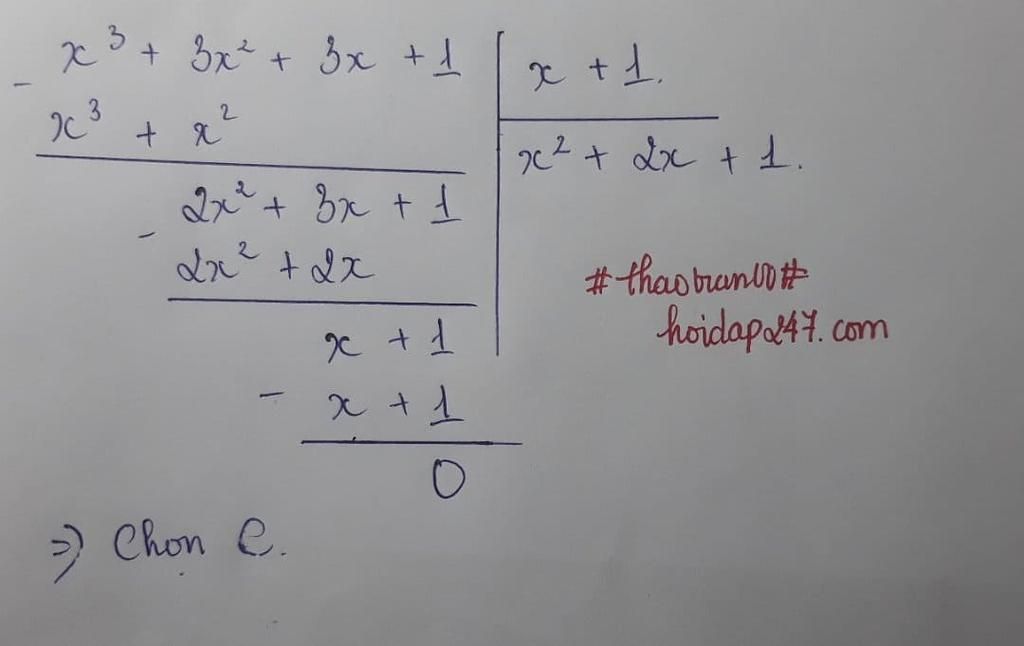 x³ + 3x² + 3x + 1
x + 1.
- x³ + x²
x² + 2x + 1.
2x² + 3x + 1
- 2x² + 2x
x + 1
- x + 1
0
#thaotran00#
hoidap247.com
⇒ Chọn C.